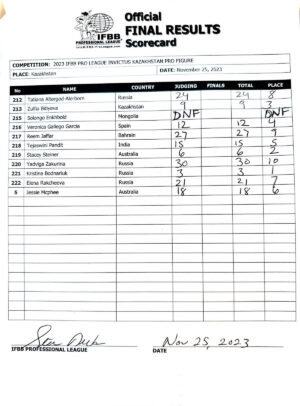 IFBB
PROFESSIONAL LEAGUE
Official
FINAL RESULTS
Scorecard
COMPETITION: 2023 IFBB PRO LEAGUE INVICTUS KAZAKHSTAN PRO FIGURE
PLACE: Kazakhstan DATE: November 25, 2023
No NAME COUNTRY JUDGING FINALS TOTAL PLACE
212 Tatiana Altergod-Alerborn Russia 24 24 8
213 Zulfia Bitiyeva Kazakhstan 9 9 3
215 Solongo Enkhbold Mongolia DNF DNF
216 Veronica Gallego Garcia Spain 12 12 4
217 Reem Jaffar Bahrain 27 27 9
218 Tejaswini Pandit India 15 15 5
219 Stacey Steiner Australia 6 6 2
220 Yadviga Zakurina Russia 30 30 10
221 Kristina Bodnariuk Russia 3 3 1
222 Elena Rakcheeva Russia 21 21 7
5 Jessie Mcphee Australia 18 18 6
Nov 25, 2023
IFBB PROFESSIONAL LEAGUE DATE